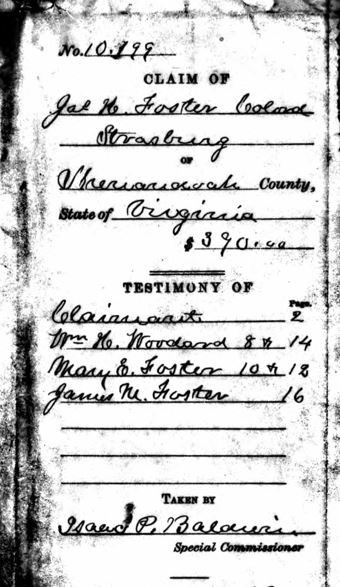 No. 10,199
CLAIM OF
Jas H. Foster Colord
Strasburg
OF
Shenandoah County,
State of Virginia
$390.00
TESTIMONY OF
Page.
Claimant 2
Wm H. Woodard 8 & 14
Mary E. Foster 10 & 12
James M. Foster 16
TAKEN BY
Isaac P. Baldwin
Special Commissioner